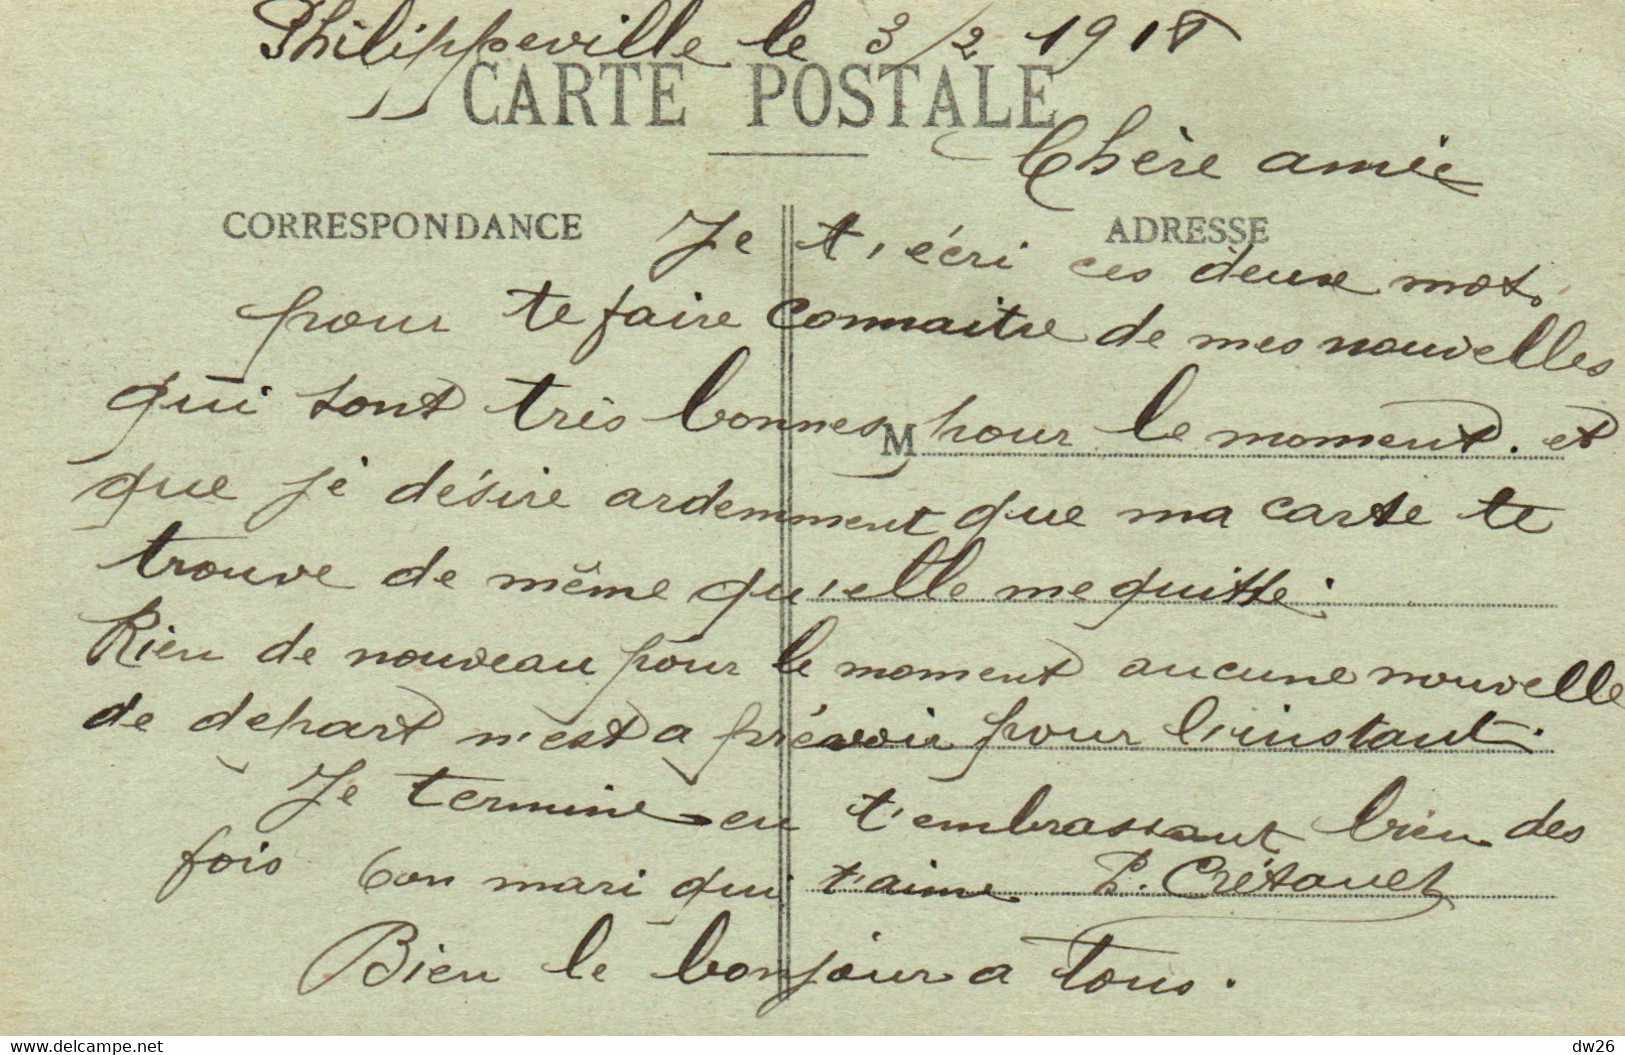 Philippeville le 3/2 1918
CARTE POSTALE
Chère amie
CORRESPONDANCE
ADRESSE
Je t'écri ces deux mots
pour te faire connaitre de mes nouvelles
qui sont très bonnes pour le moment. et
M
que je désire ardemment que ma carte te
trouve de même qu'elle me quitte.
Rien de nouveau pour le moment aucune nouvelle
de depart n'est a prévoir pour l'instant.
Je termine en t'embrassant bien des
fois ton mari qui t'aime P.
Bien le bonjour a Tous.
www.delcampe.net
dw26